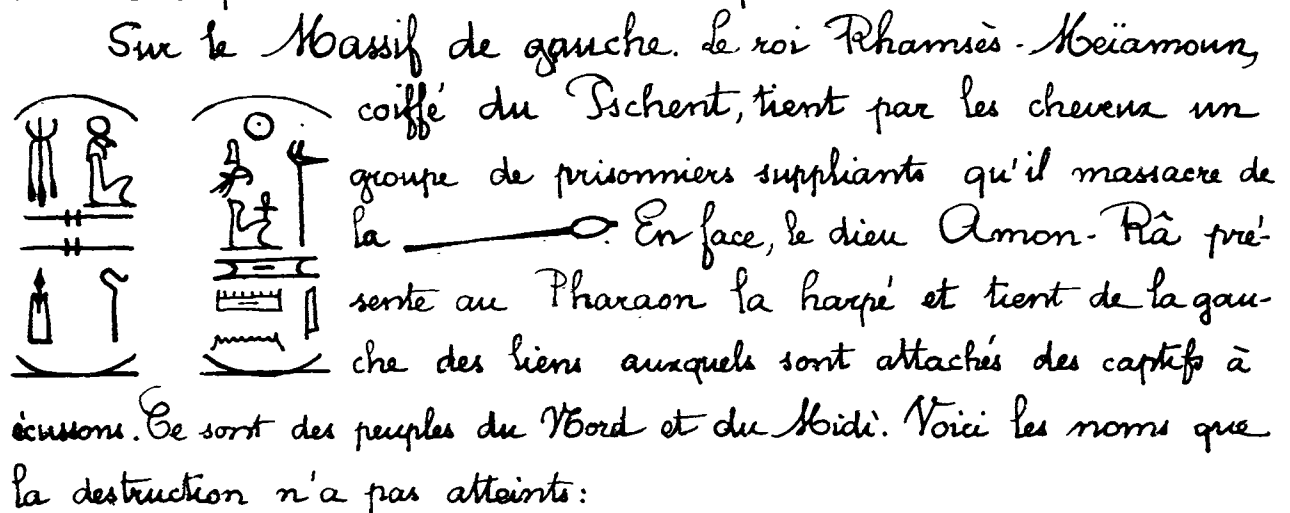 Sur le Massif de gauche. Le roi Rhamsès-Meïamoun,
coiffé du Pschent, tient par les cheveux un
groupe de prisonniers suppliants qu'il massacre de
la . En face, le dieu Amon-Râ pré-
sente au Pharaon la harpé et tient de la gau-
che des liens auxquels sont attachés des captifs à
écussons. Ce sont des peuples du Nord et du Midi. Voici les noms que
la destruction n'a pas atteints: